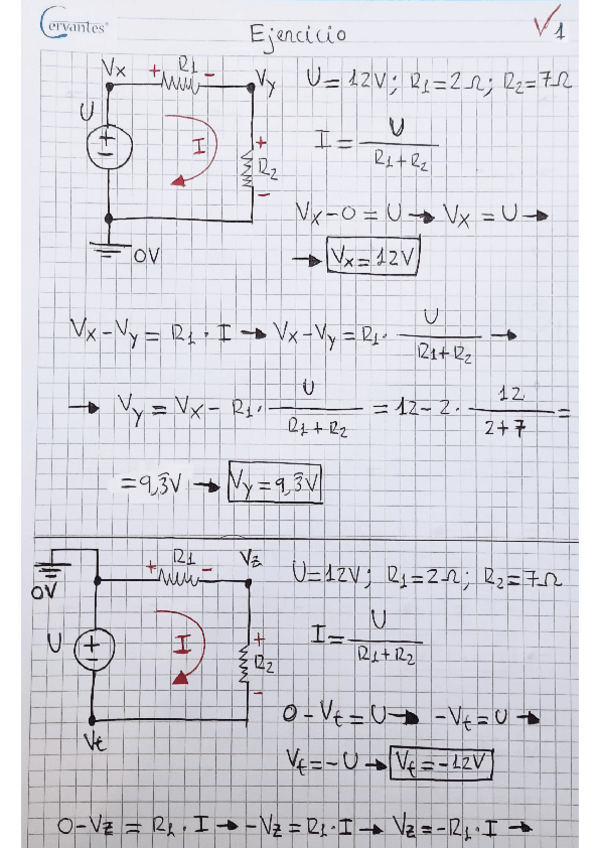 Cervantes
Ejercicio
√1
Vx + R1 - Vy
U = 12V; R1 = 2Ω; R2 = 7Ω
U + - I + R2 -
I = U / (R1 + R2)
Vx - 0 = U → Vx = U →
0V
→ Vx = 12V
Vx - Vy = R1 · I → Vx - Vy = R1 · U / (R1 + R2) →
→ Vy = Vx - R1 · U / (R1 + R2) = 12 - 2 · 12 / (2 + 7) =
= 9,3V → Vy = 9,3V
0V + R1 - Vz
U = 12V; R1 = 2Ω; R2 = 7Ω
U + - I + R2 -
I = U / (R1 + R2)
0 - Vt = U → -Vt = U →
Vt
Vt = -U → Vt = -12V
0 - Vz = R1 · I → -Vz = R1 · I → Vz = -R1 · I →